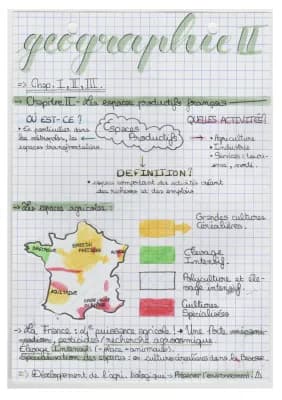 géographie III
=> Chap. I, II, III.
→ Chapitre II - Les espaces productifs français
OÙ EST-CE ?
• En particulier dans
les métropoles, les
espaces transfrontaliers.
Espaces
Productifs
QUELLES ACTIVITÉS ?
• Agriculture
• Industrie
• Services : touris-
me, santé..
DEFINITION :
• espace comportant des activités créant
des richesses et des emplois
→ Les espaces agricoles :
BRETAGNE
BASSIN
PARISIEN
AQUITAINE
Grandes cultures
Céréalières.
Elevage
Intensif.
Polyculture et éle-
vage intensif.
Cultures
Spécialisées
→ La France : 1ère puissance agricole ! • Une forte mécani-
sation, pesticides / recherche agronomique
Elevage Intensif (- place + animale).
Spécialisation des espaces : en culture céréalières dans la Beauce.
=> Développement de l'agri. biologique → Préserver l'environnement !